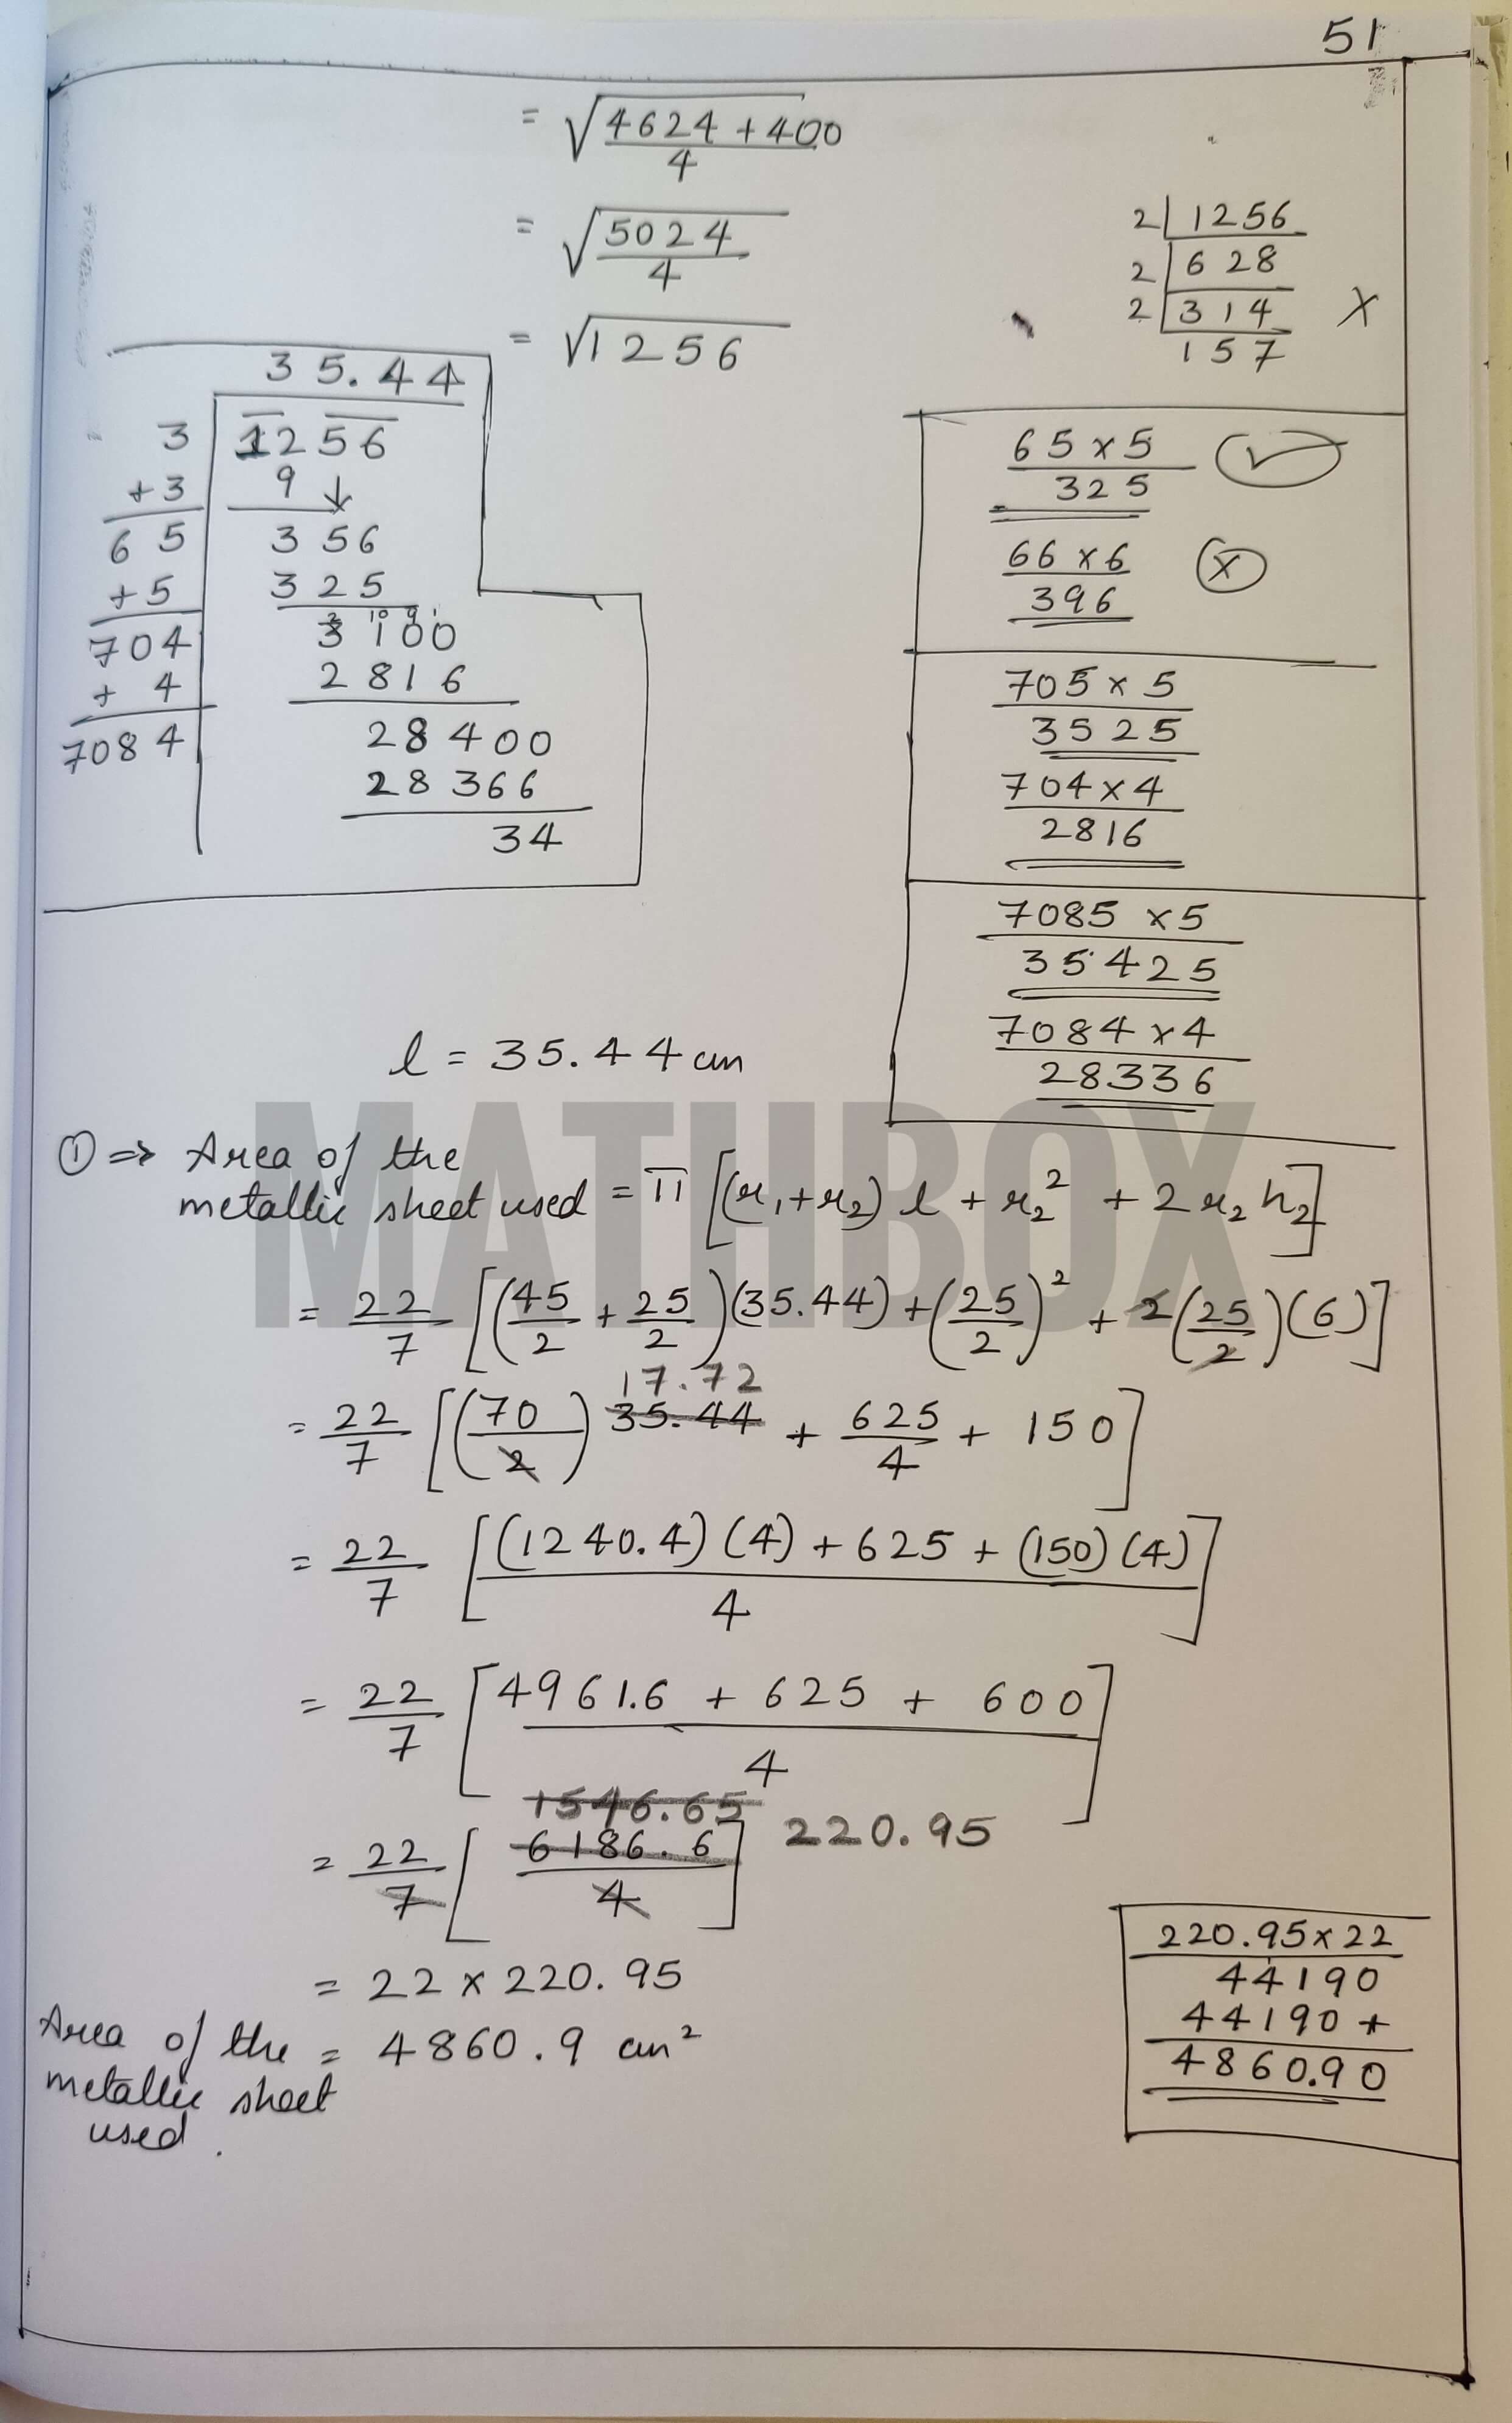 51
= √(4624 + 400 / 4)
= √(5024 / 4)
= √1256
2 | 1256
2 | 628
2 | 314 X
157
35.44
3 | 1256
+3 | 9 ↓
65 | 356
+5 | 325
704 | 3100
+ 4 | 2816
7084 | 28400
28366
34
65 × 5 ✓
325
66 × 6 ⓧ
396
705 × 5
3525
704 × 4
2816
7085 × 5
35425
7084 × 4
28336
l = 35.44 cm
① ⇒ Area of the
metallic sheet used = π [(r₁+r₂) l + r₂² + 2 r₂ h₂]
= 22/7 [(45/2 + 25/2)(35.44) + (25/2)² + 2(25/2)(6)]
17.72
= 22/7 [(70/2) 35.44 + 625/4 + 150]
= 22/7 [(1240.4)(4) + 625 + (150)(4) / 4]
= 22/7 [4961.6 + 625 + 600 / 4]
1546.65
= 22/7 [6186.6 / 4] 220.95
= 22 × 220.95
Area of the = 4860.9 cm²
metallic sheet
used.
220.95 × 22
44190
44190 +
4860.90
MATHBOX